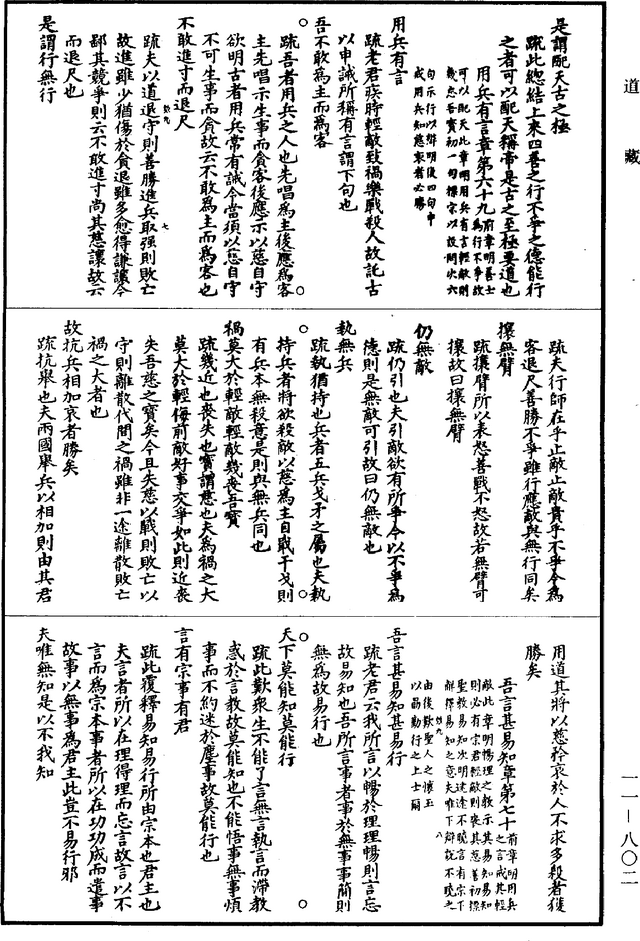 道藏
是謂配天古之極
疏此總結上來四善之行不爭之德能行
之者可以配天稱帝是古之至極要道也
用兵有言章第六十九前章明善士
為行不爭故
可以配天此章明用兵有言輕敵則
喪忠吾寶初一句標宗以設問次六
句示行以辯明後四句申
戒用兵知慈哀者必勝
用兵有言
疏老君疾時輕敵致禍樂戰殺人故託古
以申誡所稱有言謂下句也
吾不敢為主而為客
疏吾者用兵之人也先唱為主後應為客
主先唱示生事而貪客後應示以慈自守
欲明古者用兵常有誡令當須以慈自守
不可生事而貪故云不敢為主而為客也
不敢進寸而退尺
疏夫以道退守則善勝進兵取强則敗亡
故進雖少猶傷於貪退雖多愈得謙讓今
鄙其競爭則云不敢進寸尚其慈讓故云
而退尺也
是謂行無行
疏夫行師在乎止敵止敵貴乎不爭今為
客退尺善勝不爭雖行應敵與無行同矣
攘無臂
疏攘臂所以表怒善戰不怒故若無臂可
攘故曰攘無臂
仍無敵
疏仍引也夫引敵欲有所爭今以不爭為
德則是無敵可引故曰仍無敵也
執無兵
疏執猶持也兵者五兵戈矛之屬也夫執
持兵者將欲殺敵以慈為主自戢干戈則
有兵本無殺意是則與無兵同也
禍莫大於輕敵輕敵幾喪吾寶
疏幾近也喪失也寶謂慈也夫為禍之大
莫大於輕侮前敵好事交爭如此則近喪
失吾慈之寶矣今且失慈以戰則敗亡以
守則離散代間之禍雖非一途離散敗亡
禍之大者也
故抗兵相加哀者勝矣
疏抗舉也夫兩國舉兵以相加則由其君
用道其將以慈矜哀於人不求多殺者獲
勝矣
吾言甚易知章第七十前章明用兵
之言戒其輕
敵此章明暢理之教示其易知易知
則必有宗君輕敵則喪其慈善初標
聖教易知次明迷途不曉言有宗下
解釋易知之意夫唯下辯說不曉之
由後歎聖人之懷玉
以勗勤行之上士爾
吾言甚易知甚易行
疏老君云我所言以暢於理理暢則言忘
故易知也吾所言事者事於無事事簡則
無為故易行也
天下莫能知莫能行
疏此歎衆生不能了言無言執言而滯教
惑於言教故莫能知也不能悟事無事煩
事而不約迷於塵事故莫能行也
言有宗事有君
疏此覆釋易知易行所由宗本也君主也
夫言者所以在理得理而忘言故言以不
言而為宗本事者所以在功功成而遣事
故事以無事為君主此豈不易行邪
夫唯無知是以不我知
一一－八〇二